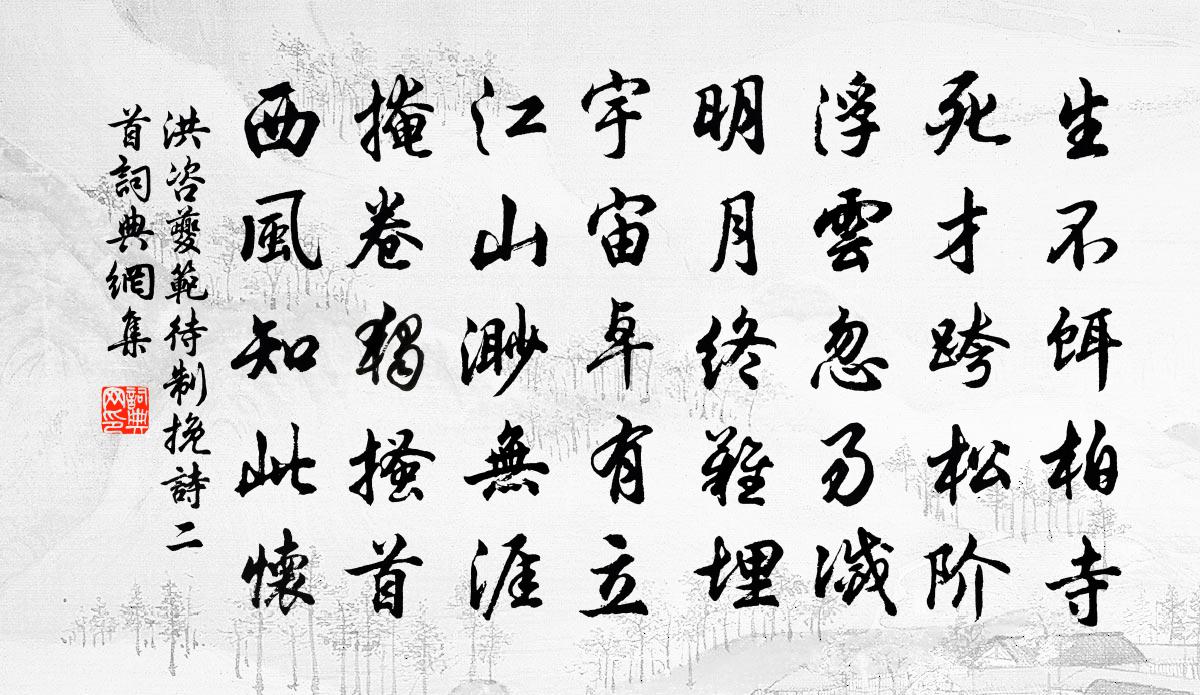 生不餌柏寺
死才跨松阶
浮雲忽易滅
明月終難埋
宇宙卓有立
江山渺無涯
掩卷獨搔首
西風知此懷
洪咨夔範待制挽詩二
首詞典網集
詞典
网印